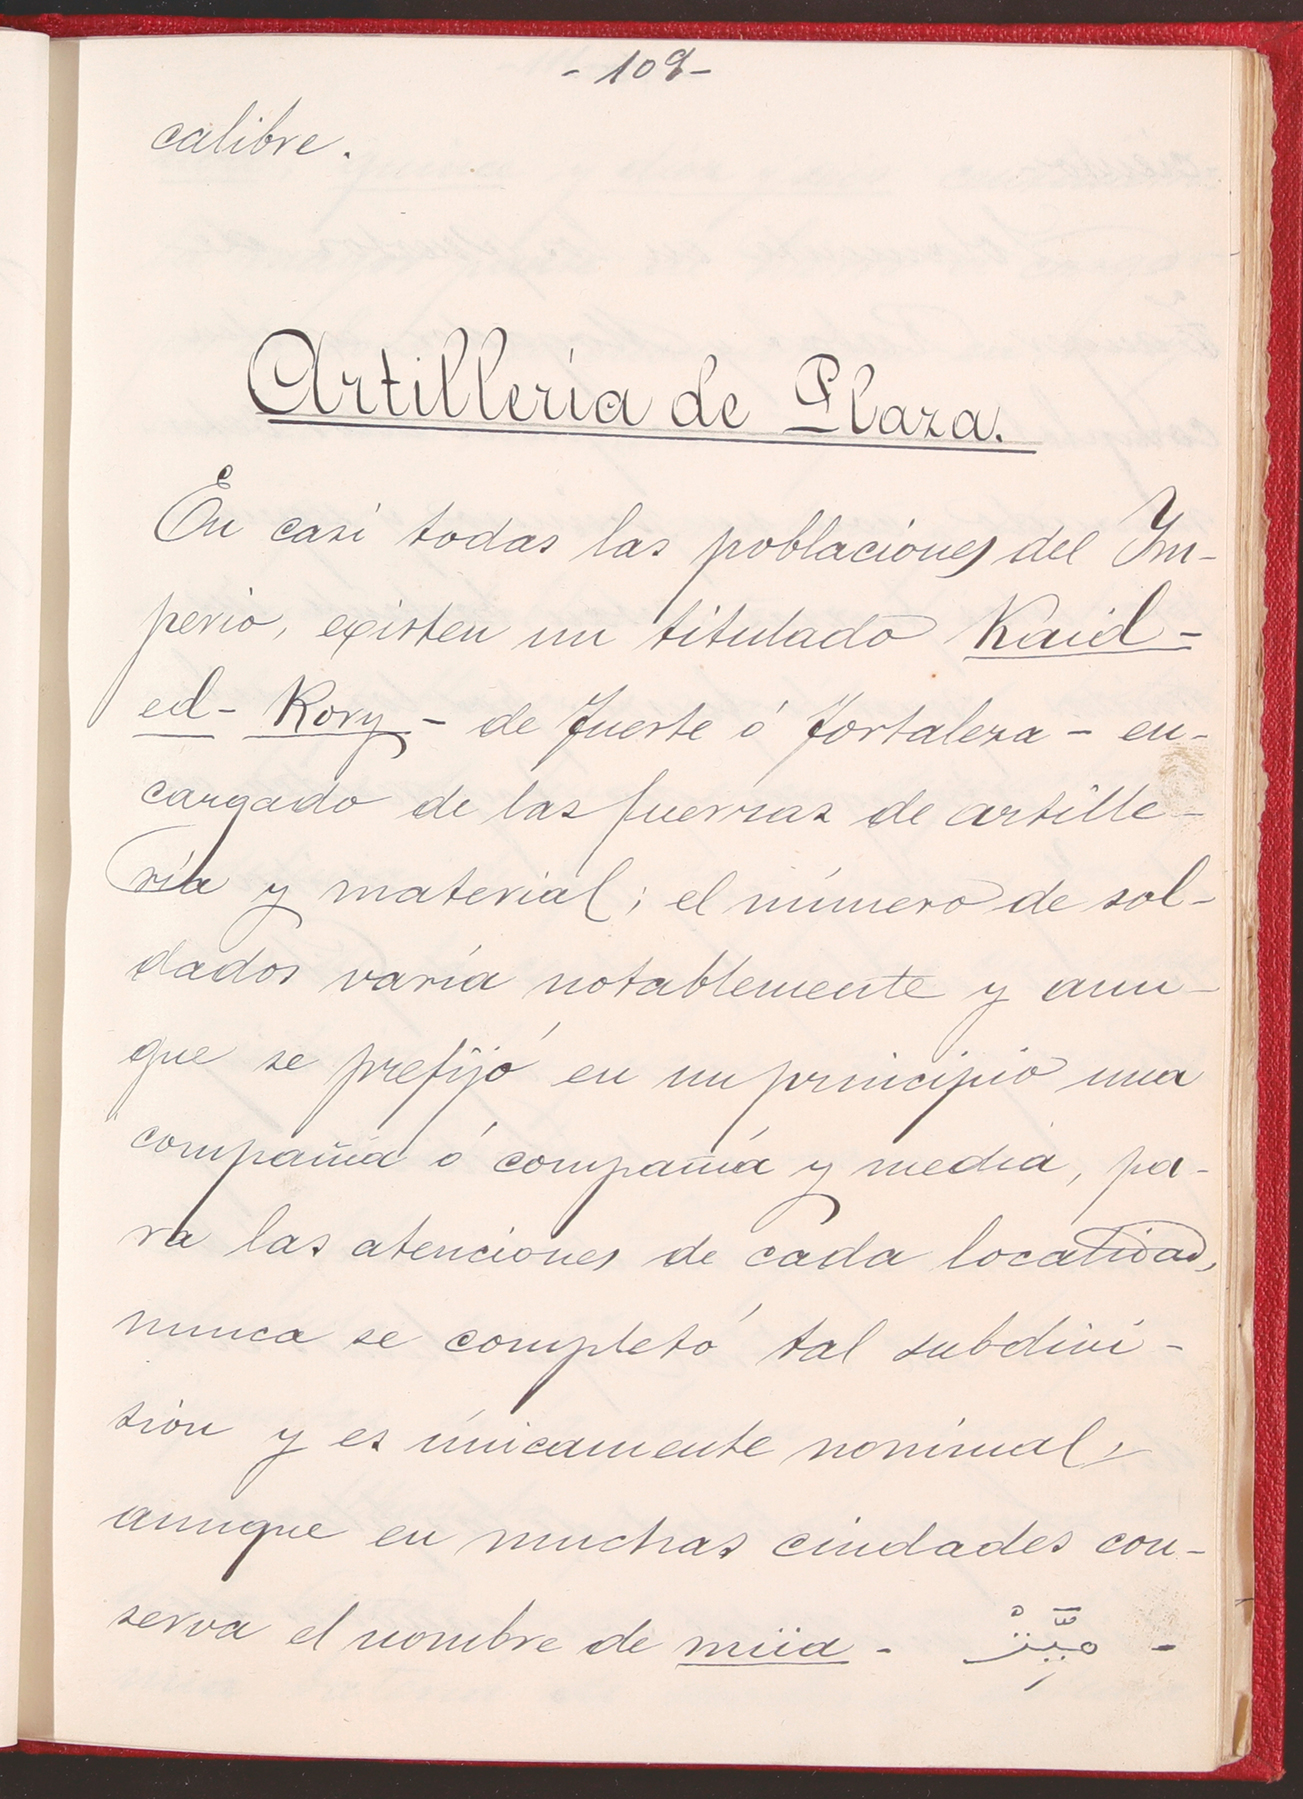 - 109 -
calibre.
Artillería de Plaza.
En casi todas las poblaciones del Im-
perio, existen un titulado Kaid -
ed - Kory - de fuerte ó fortaleza - en-
cargado de las fuerzas de artille-
ría y material; el número de sol-
dados varía notablemente y aun-
que se prefijó en un principio una
compañía ó compañía y media, pa-
ra las atenciones de cada localidad,
nunca se completó tal subdivi-
sión y es únicamente nominal,
aunque en muchas ciudades con-
serva el nombre de miia - -